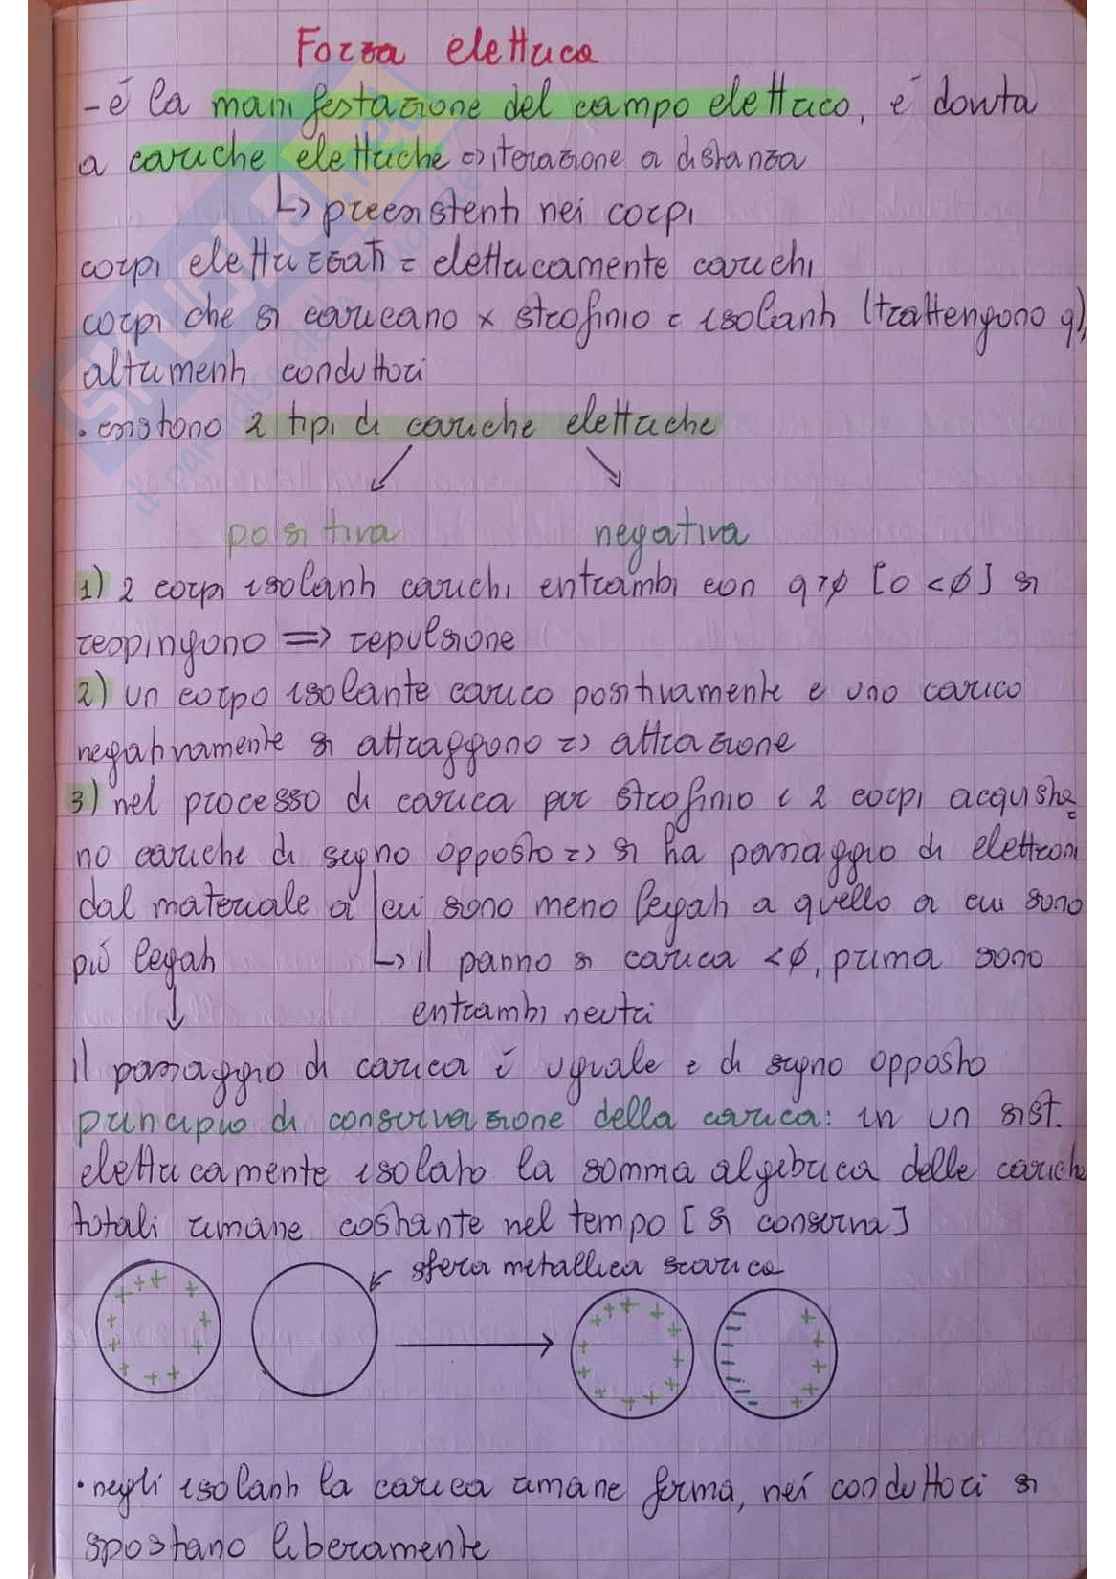 Forza elettrica
- é la manifestazione del campo elettrico, é dovuta
a cariche elettriche => iterazione a distanza
↳ preesistenti nei corpi
corpi elettrizzati = elettricamente carichi
corpi che si caricano x strofinio = isolanti (trattengono q),
altrimenti conduttori
• esistono 2 tipi di cariche elettriche
positiva negativa
1) 2 corpi isolanti carichi entrambi con q>ø [o <ø] si
respingono => repulsione
2) un corpo isolante carico positivamente e uno carico
negativamente si attraggono => attrazione
3) nel processo di carica per strofinio i 2 corpi acquista=
no cariche di segno opposto => si ha passaggio di elettroni
dal materiale a cui sono meno legati a quello a cui sono
piú legati ↳ il panno si carica <ø, prima sono
entrambi neutri
il passaggio di carica é uguale e di segno opposto
principio di conservazione della carica: in un sist.
elettricamente isolato la somma algebrica delle cariche
totali rimane costante nel tempo [si conserva]
sfera metallica scarica
• negli isolanti la carica rimane ferma, nei conduttori si
spostano liberamente